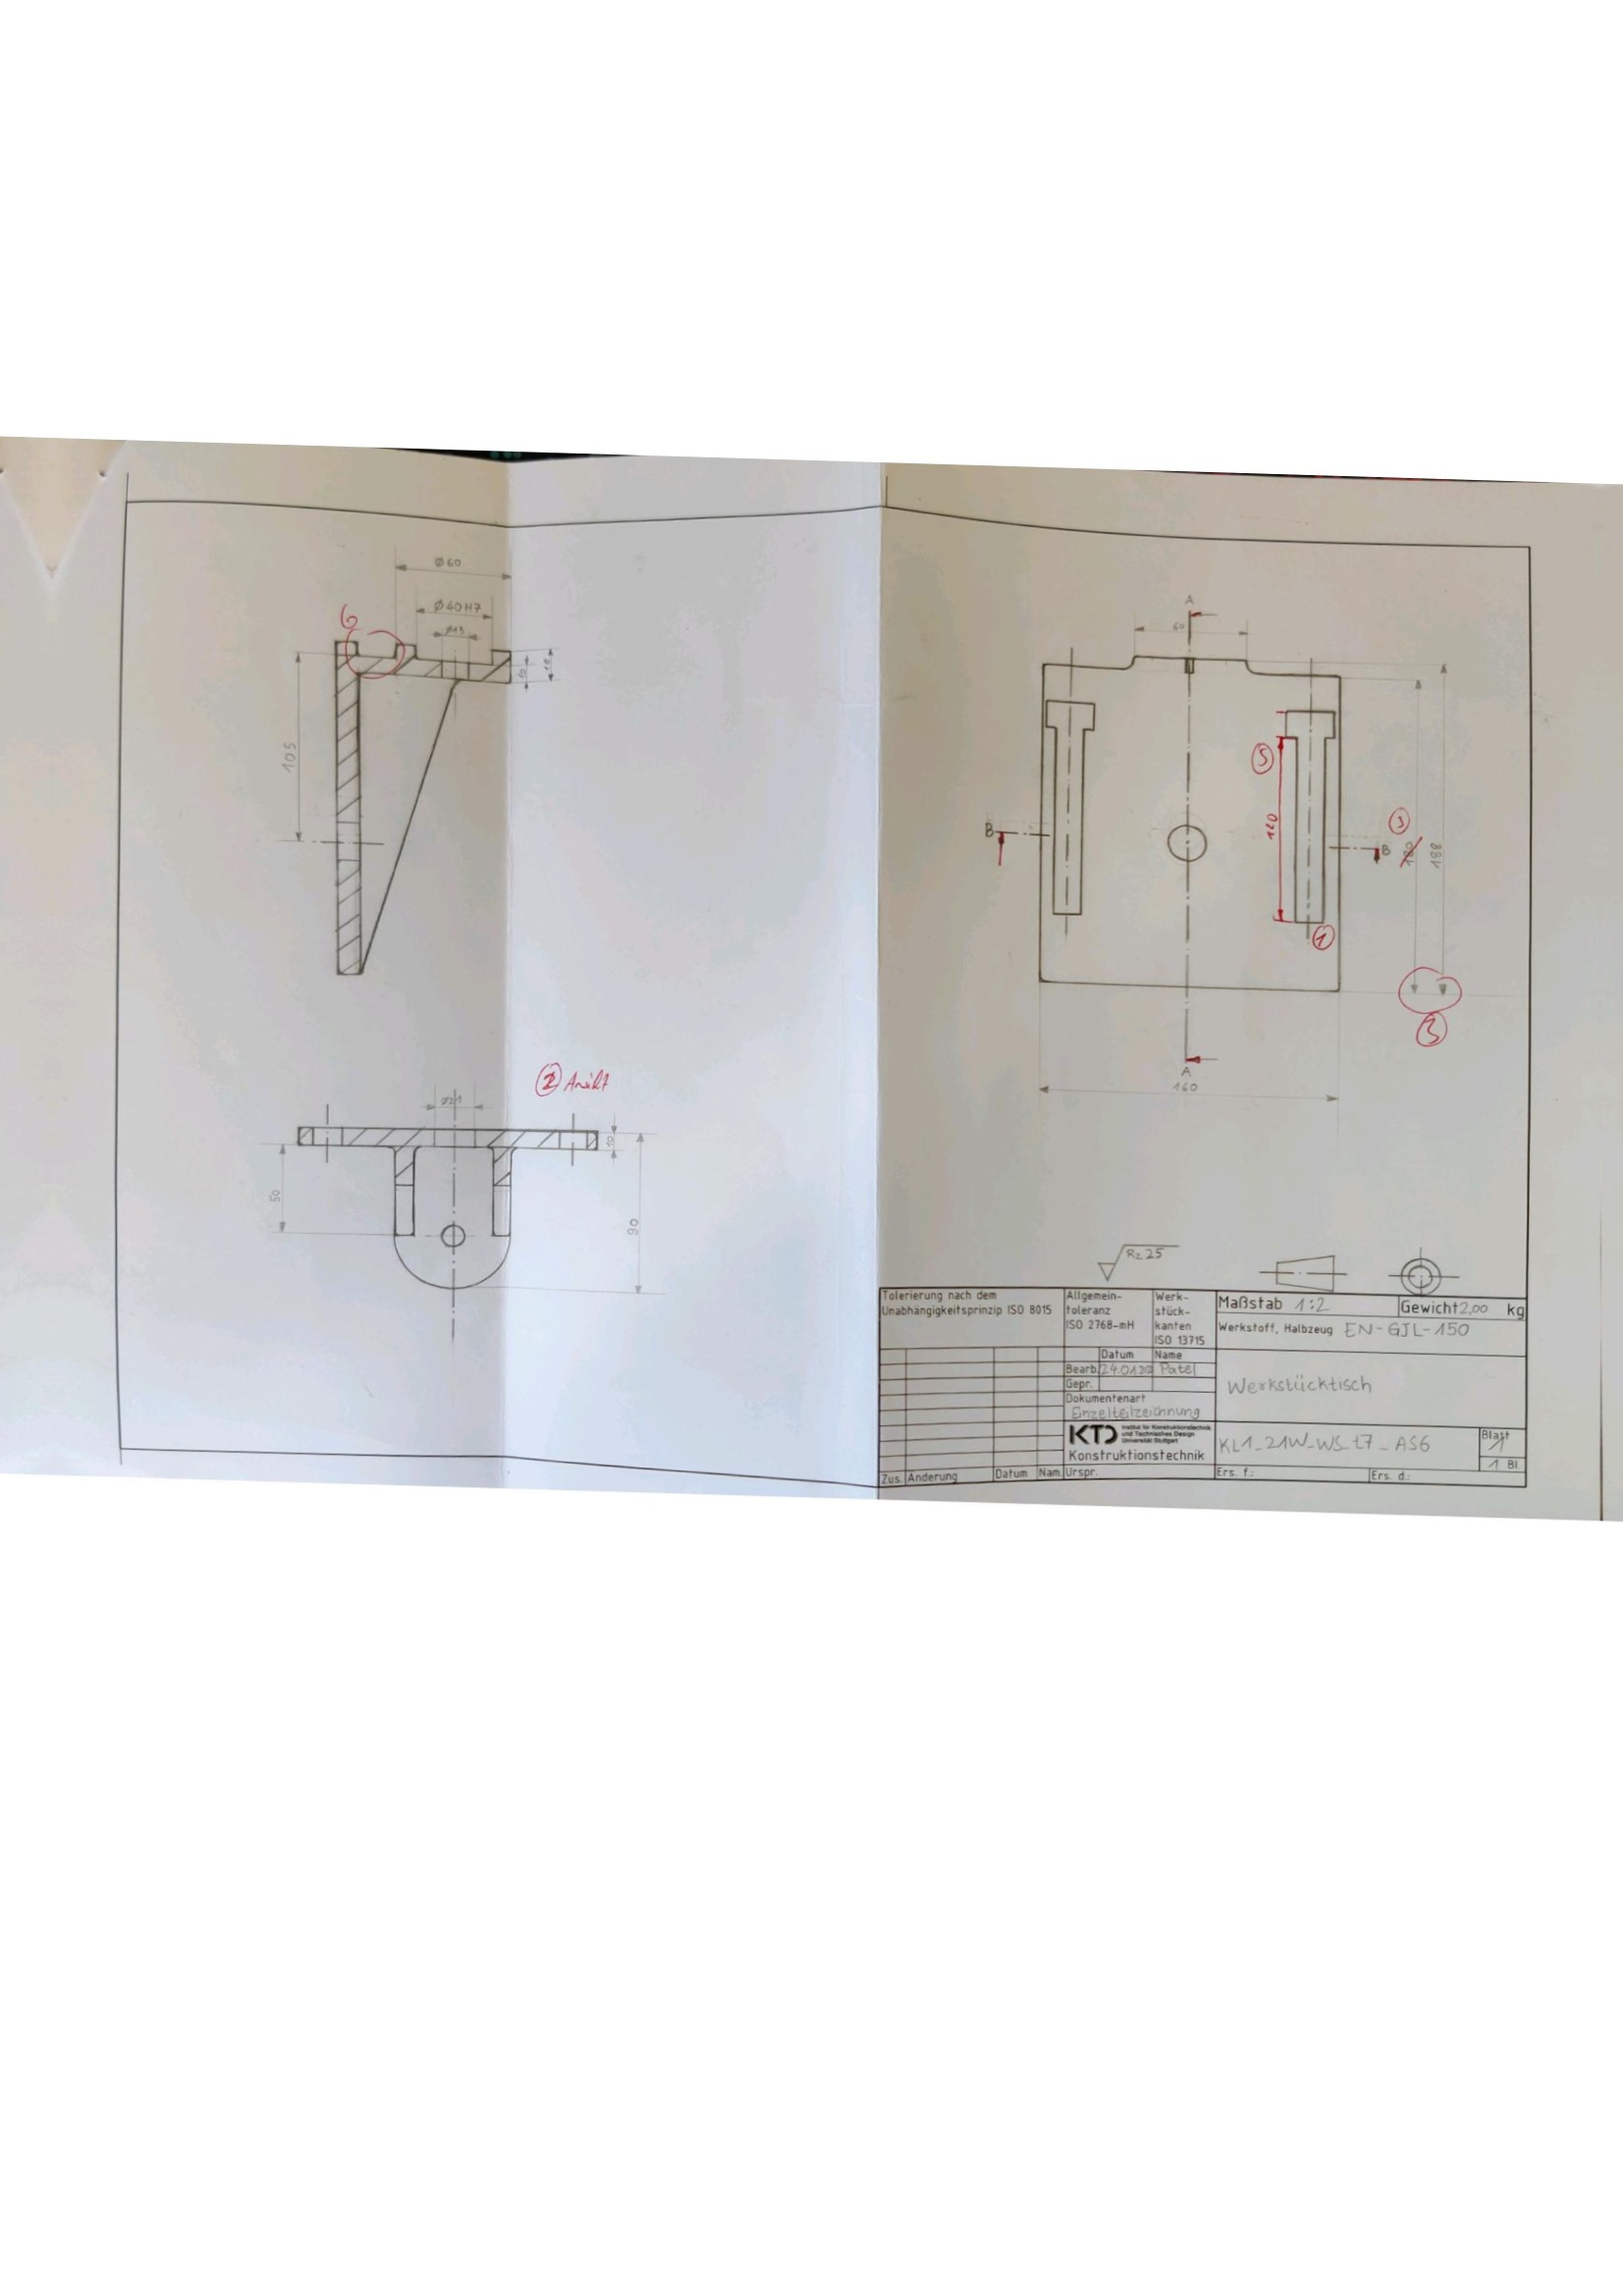 Ø60
Ø40H7
Ø13
6
10
18
105
A
60
5
120
B
B
3
188
1
3
A
160
2 Ansicht
Ø21
10
50
90
Rz 25
Tolerierung nach dem
Unabhängigkeitsprinzip ISO 8015
Allgemein-
toleranz
ISO 2768-mH
Werk-
stück-
kanten
ISO 13715
Maßstab 1:2
Gewicht 2,00 kg
Werkstoff, Halbzeug EN-GJL-150
Datum Name
Bearb. Patel
Gepr.
Dokumentenart
Einzelteilzeichnung
Werkstücktisch
KTD Institut für Konstruktionstechnik
und Technisches Design
Universität Stuttgart
Konstruktionstechnik
KL1_21W_WS_t7_AS6
Blatt
1
1 Bl.
Zus. Änderung Datum Nam. Urspr. Ers. f.: Ers. d.: